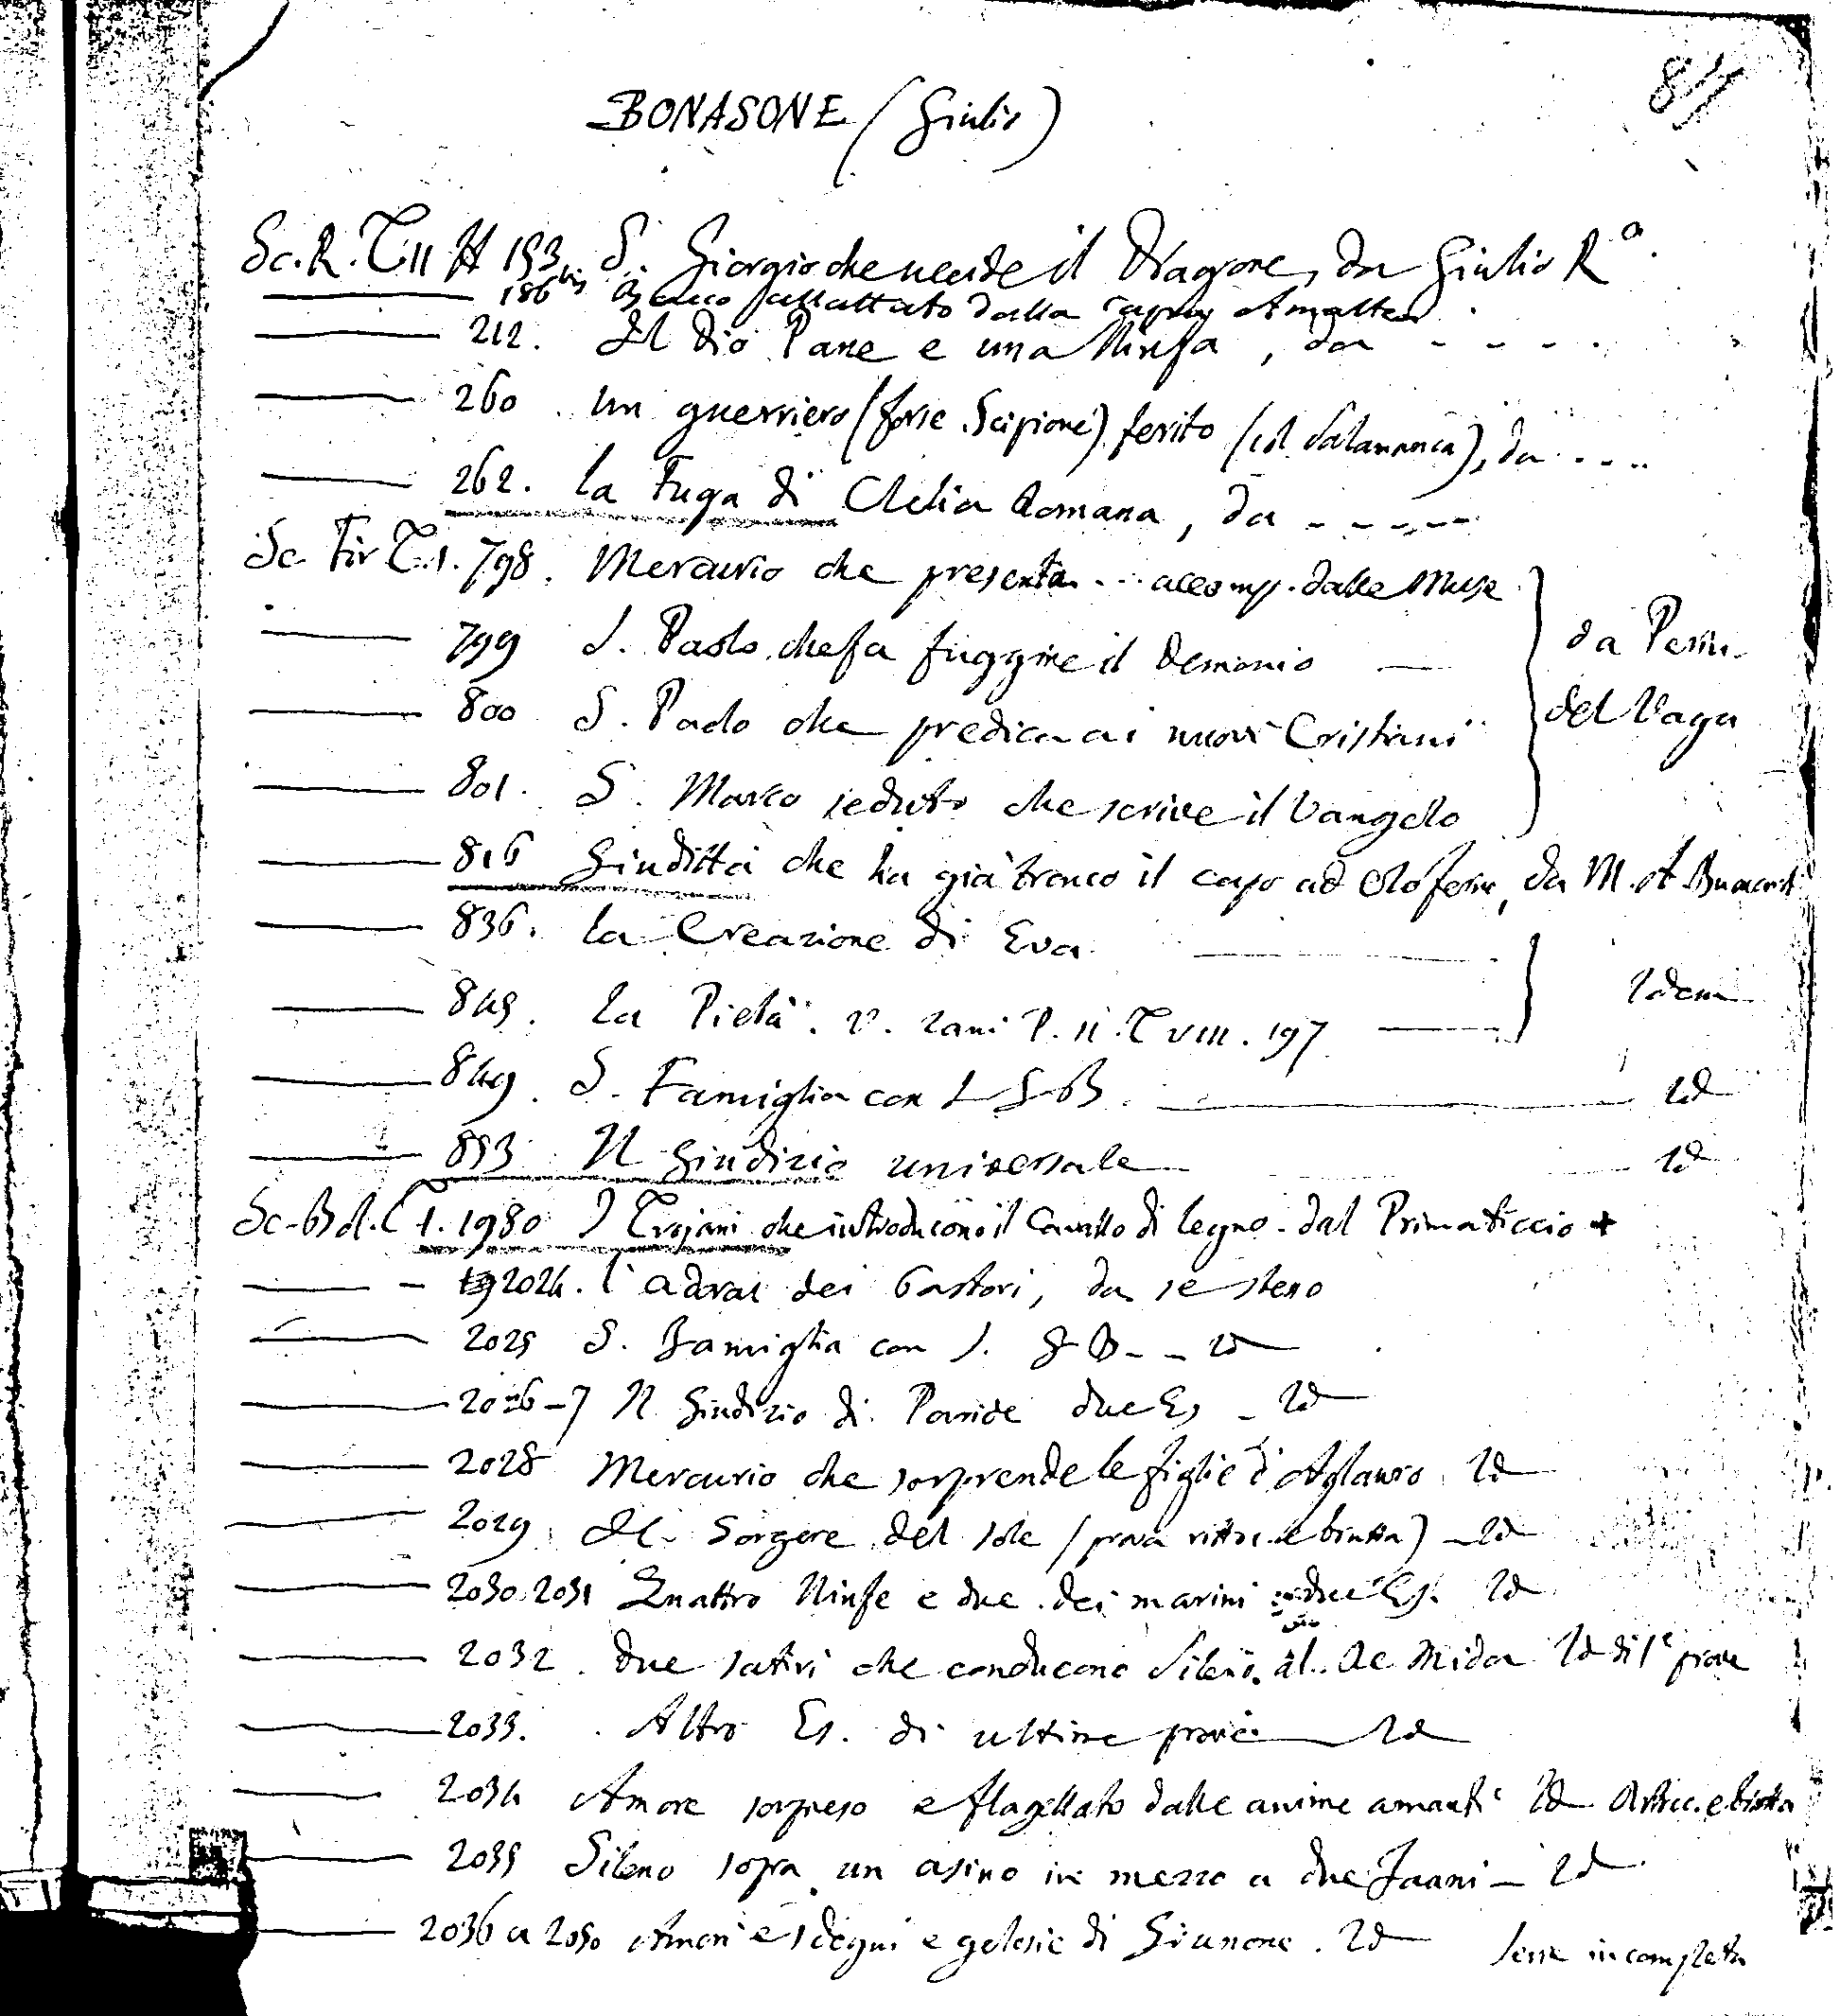 BONASONE (Giulio)
Sc. R. T. II H 153. S. Giorgio che uccide il Dragone, da Giulio Rº.
186 bis Bacco allattato dalla capra Amaltea.
212. Il Dio Pane e una Ninfa, da - - - -
260. Un guerriero (forse Scipione) ferito (id. Salamanca), da - - - -
262. La Fuga di Clelia Romana, da - - - - -
Sc. Fir T. 1. 798. Mercurio che presenta ... accomp. dalle Muse
799 S. Paolo che fa fuggire il Demonio — da Perin
800 S. Paolo che predica ai nuovi Cristiani del Vaga
801. S. Marco seduto che scrive il Vangelo
816 Giuditta che ha già tronco il capo ad Oloferne, da M. A. Buonarot
836. La Creazione di Eva
845. La Pietà. v. Zani P. II. T VIII. 197 Idem
849. S. Famiglia con S G B. Id
853 Il Giudizio universale Id
Sc. Bol. T 1. 1980 I Trojani che introducono il Cavallo di legno. dal Primaticcio +
2024. l'adoraz dei Pastori, da se stesso
2025 S. Famiglia con S. G B - - Id
2026-7 Il Giudizio di Paride due Es - Id
2028 Mercurio che sorprende le figlie d'Aglauro. Id
2029. Il Sorgere del sole (prova ritocc. e brutta) - Id
2030. 2031 Quattro Ninfe e due dei marini due Es. Id
2032. due satiri che conducono Sileno al Re Mida Id di 1e prove
2033. Altro Es. di ultime prove Id
2034 Amore sorpreso e flagellato dalle anime amanti Id Ritocc. e brutta
2035 Sileno sopra un asino in mezzo a due Fauni - Id
2036 a 2050 Amori e sdegni e gelosie di Giunone. Id serie incompleta